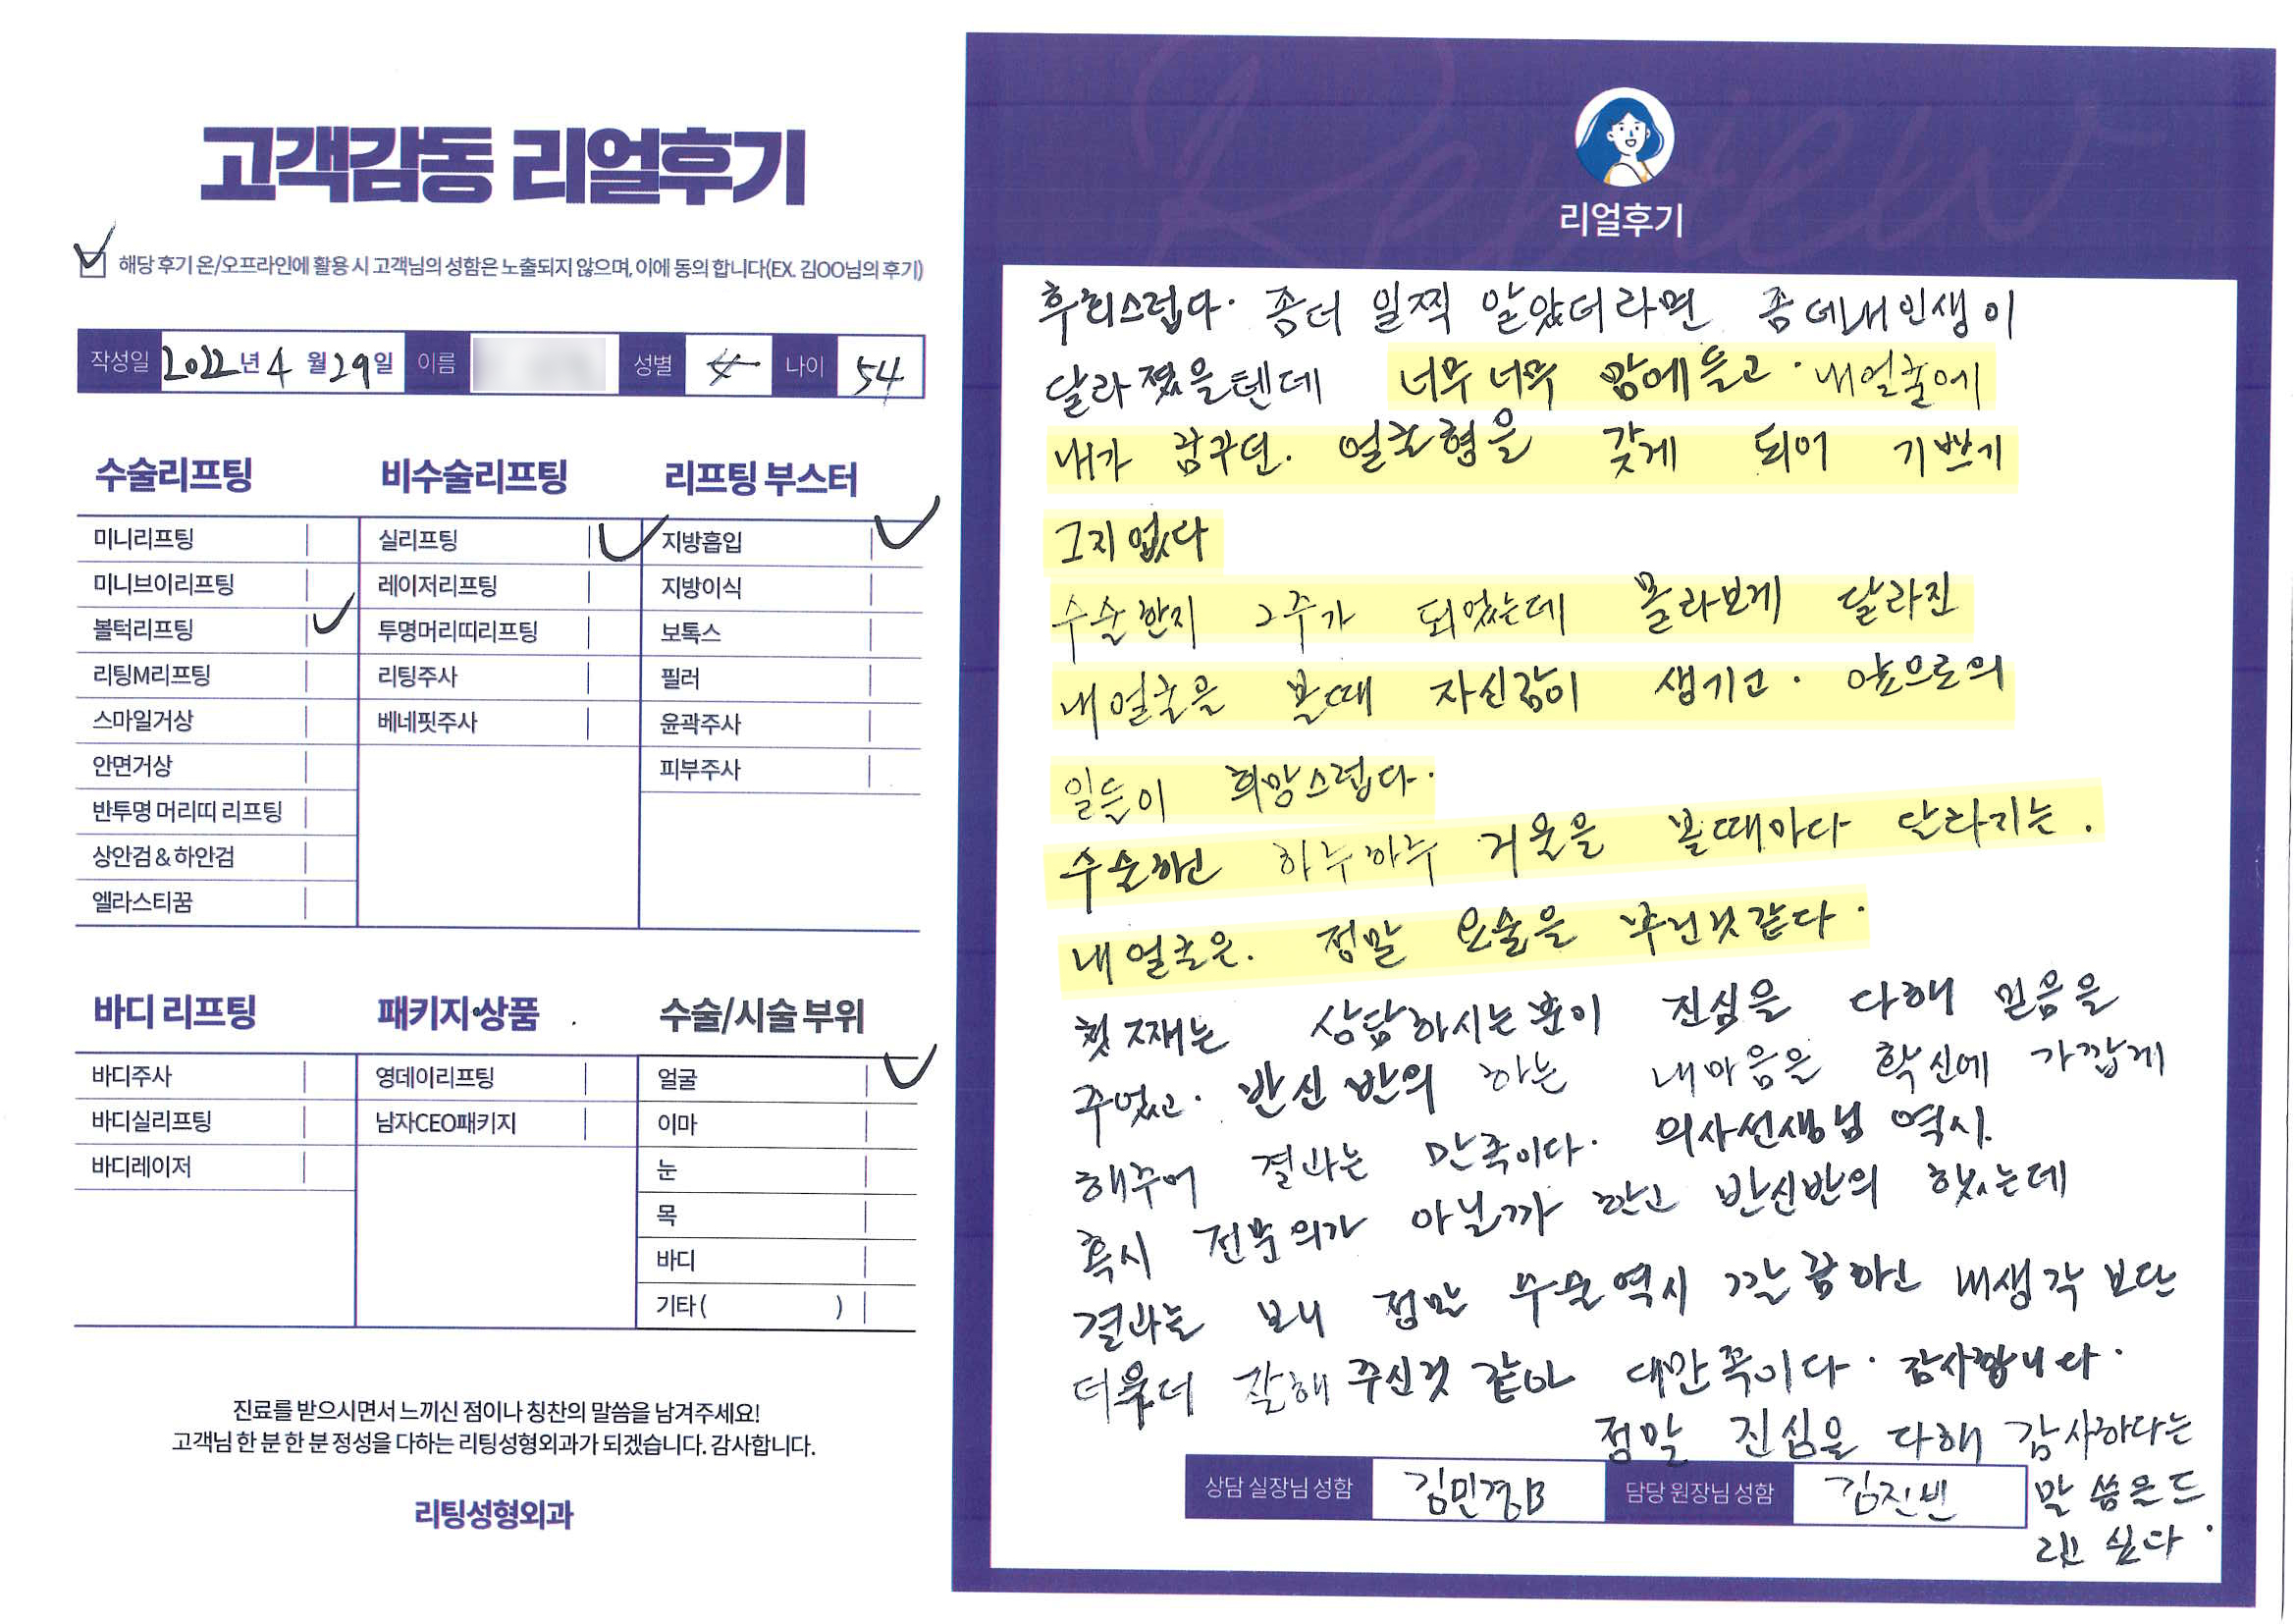 고객감동 리얼후기
해당 후기 온/오프라인에 활용 시 고객님의 성함은 노출되지 않으며, 이에 동의 합니다(EX. 김OO님의 후기)
작성일 2022년 4월 29일 이름 성별 女 나이 54
수술리프팅
미니리프팅
미니브이리프팅
볼턱리프팅
리팅M리프팅
스마일거상
안면거상
반투명 머리띠 리프팅
상안검 & 하안검
엘라스티꿈
비수술리프팅
실리프팅
레이저리프팅
투명머리띠리프팅
리팅주사
베네핏주사
리프팅 부스터
지방흡입
지방이식
보톡스
필러
윤곽주사
피부주사
바디 리프팅
바디주사
바디실리프팅
바디레이저
패키지·상품
영데이리프팅
남자CEO패키지
수술/시술 부위
얼굴
이마
눈
목
바디
기타( )
진료를 받으시면서 느끼신 점이나 칭찬의 말씀을 남겨주세요!
고객님 한 분 한 분 정성을 다하는 리팅성형외과가 되겠습니다. 감사합니다.
리팅성형외과
Review
리얼후기
후회스럽다. 좀더 일찍 알았더라면 좀데내인생이
달라졌을텐데 너무너무 맘에들고. 내얼굴에
내가 꿈꾸던. 얼굴형을 갖게 되어 기쁘기
그지없다
수술한지 2주가 되었는데 몰라보게 달라진
내얼굴을 볼때 자신감이 생기고. 앞으로의
일들이 희망스럽다.
수술하고 하루하루 거울을 볼때마다 달라지는.
내얼굴은. 정말 요술을 부린것같다.
첫째는 상담하시는분이 진심을 다해 믿음을
주었고. 반신반의 하는 내마음을 확신에 가깝게
해주어 결과는 만족이다. 의사선생님 역시.
혹시 전문의가 아닐까 하고 반신반의 했는데
결과를 보니 정말 수술역시 깔끔하고 내생각보단
더욱더 잘해주신것 같아 대만족이다. 감사합니다.
정말 진심을 다해 감사하다는
말씀은드
리고 싶다.
상담 실장님 성함 김민경B 담당 원장님 성함 김진빈